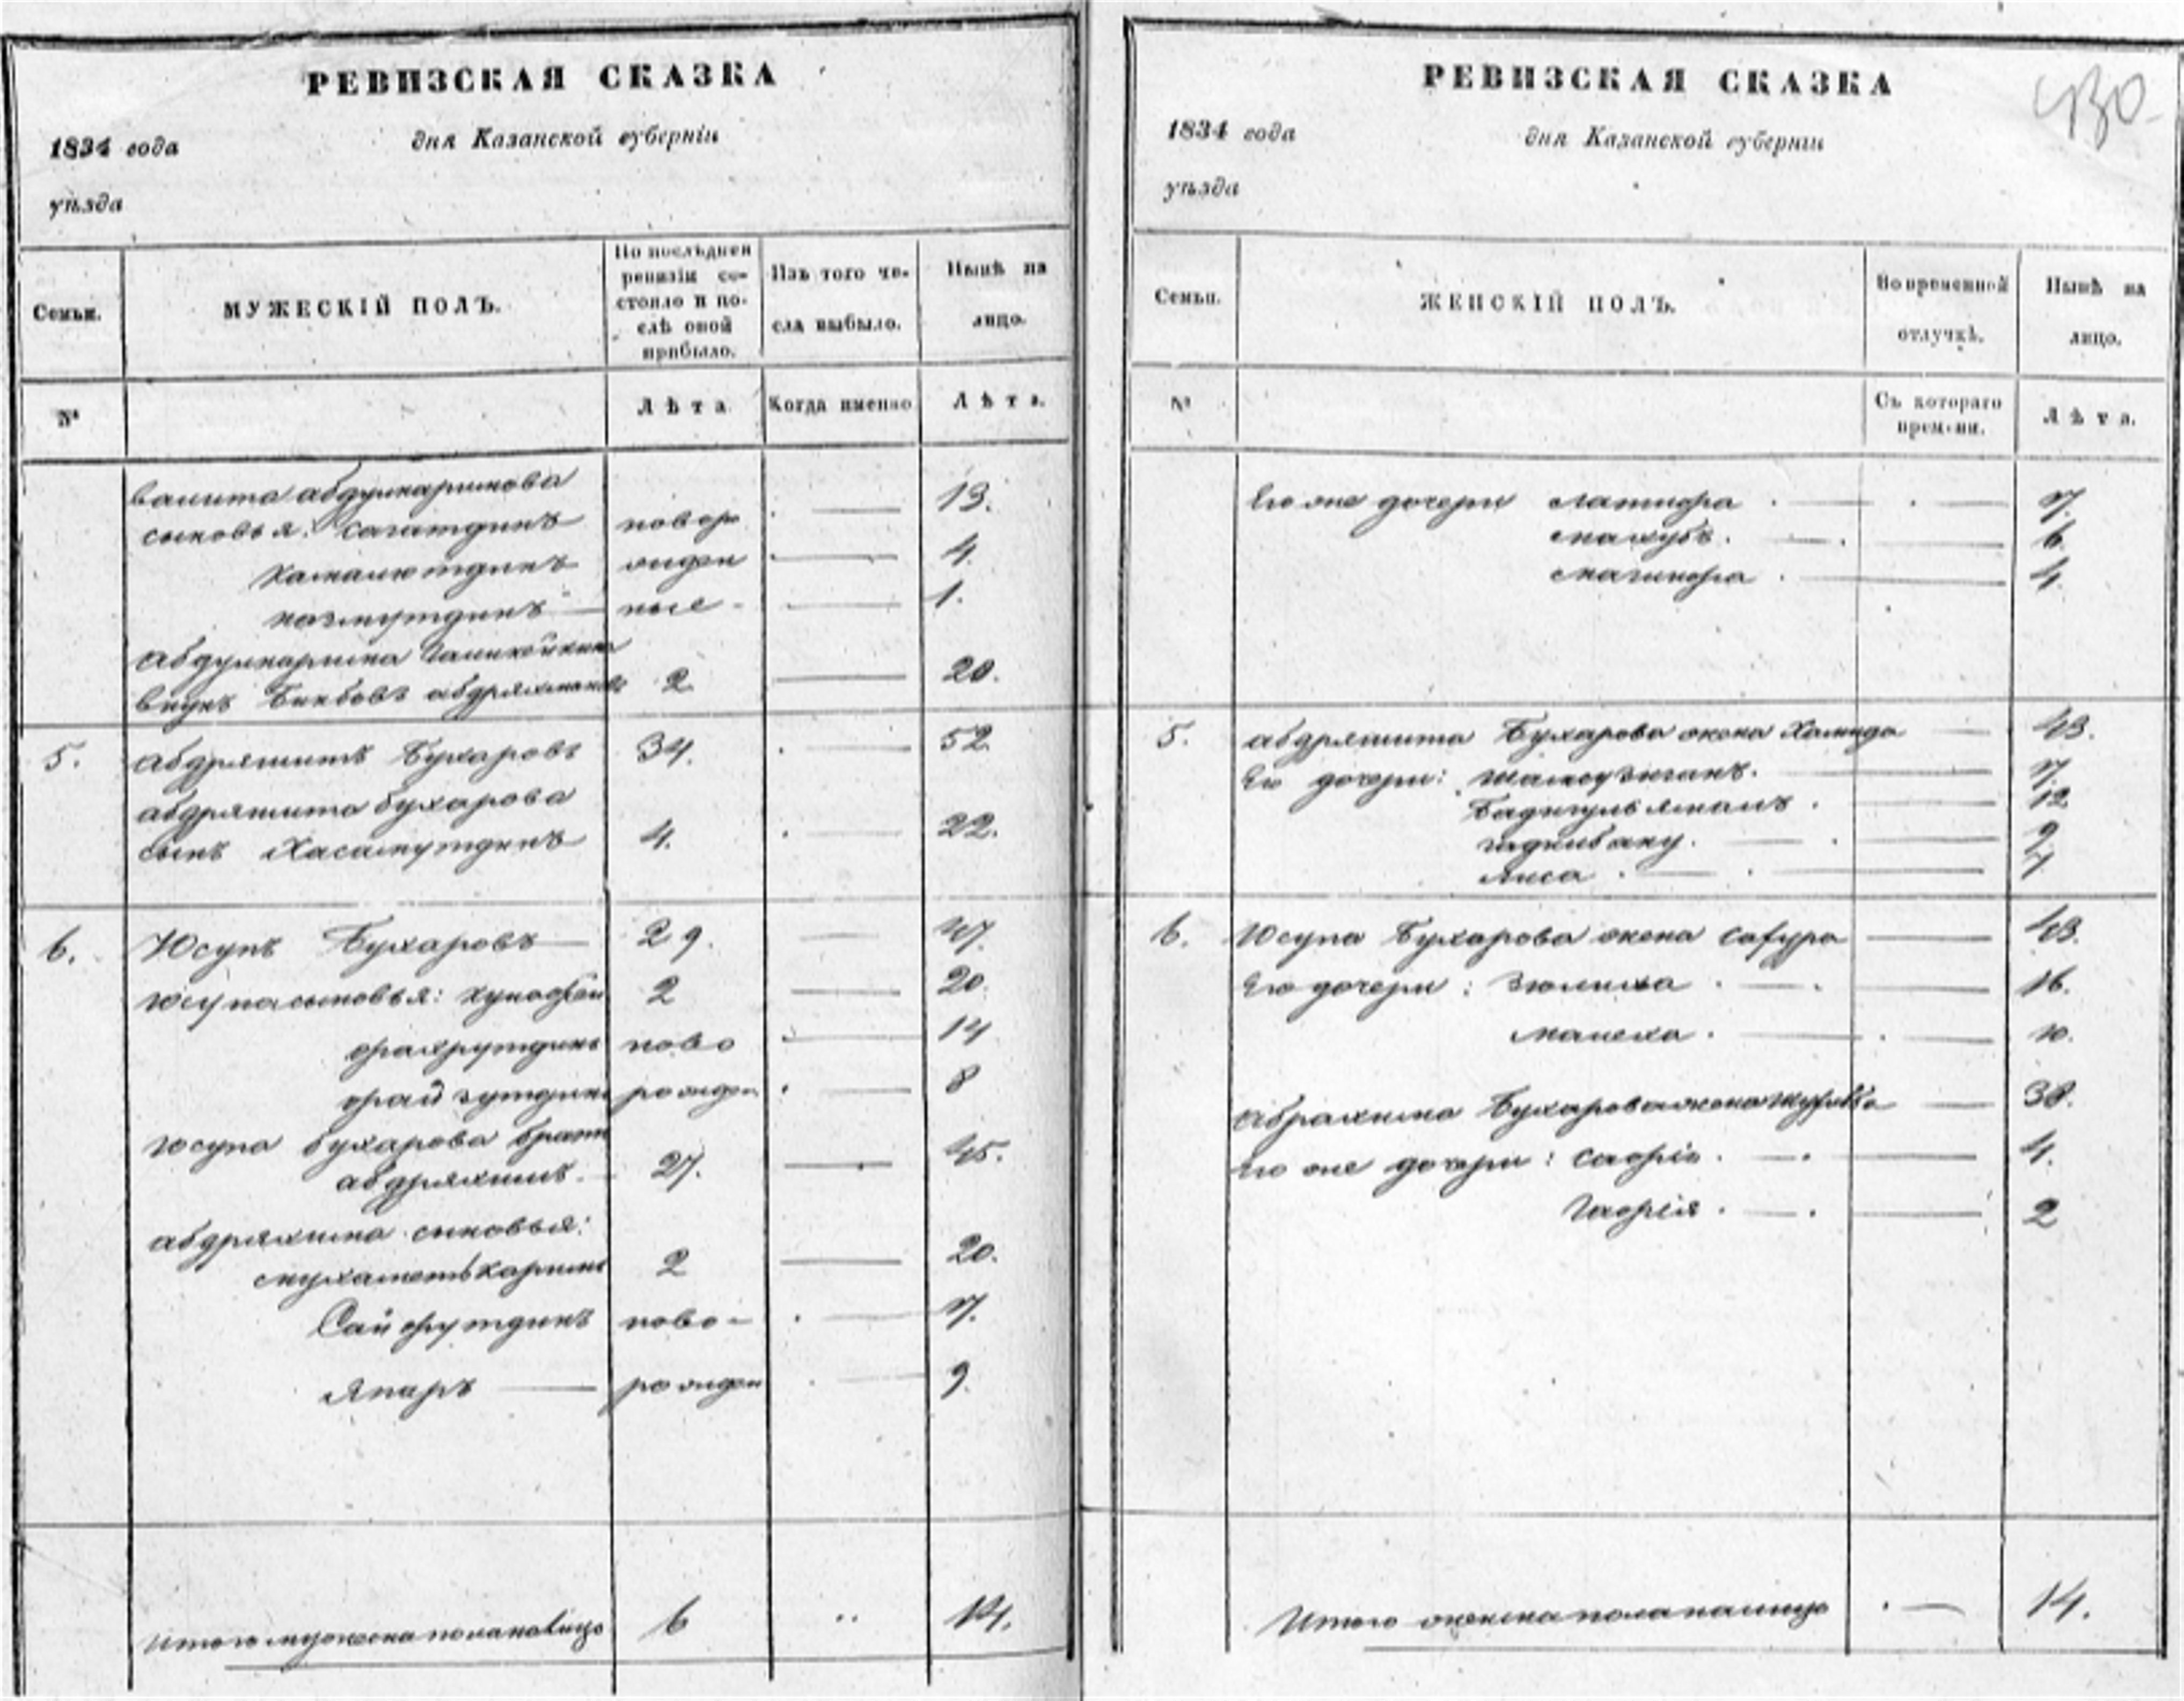 РЕВИЗСКАЯ СКАЗКА
1834 года дня Казанской губерніи
уѣзда
Семьи. МУЖЕСКІЙ ПОЛЪ. По послѣдней ревизіи состояло и послѣ оной прибыло. Изъ того числа выбыло. Нынѣ на лицо.
№ Лѣта Когда именно Лѣта.
абдулкаримова 13.
сыновья: Сагатдинъ новор
Камалютдинъ ожден 4.
ные - 1.
Абдулкарима
внукъ абдряхманов 2 20.
5. Абдряшитъ Бухаровъ 34. 52
абдряшита бухарова
сынъ Хасамутдинъ 4. 22.
6. Юсупъ Бухаровъ 29. 47.
Юсупа сыновья: 2 20.
фахрутдинъ ново 14
файзутдинъ рожден 8
Юсупа бухарова братъ
абдряхимъ. 27. 45.
абдряхима сыновья:
мухаметькаримъ 2 20.
Сайфутдинъ ново- 7.
Япаръ рожден 9.
Итого мужеска пола налицо 6 14.
РЕВИЗСКАЯ СКАЗКА
430.
1834 года дня Казанской губерніи
уѣзда
Семьи. ЖЕНСКІЙ ПОЛЪ. Во временной отлучкѣ. Нынѣ на лицо.
№ Съ котораго времени. Лѣта.
Его же дочери латифа 7.
махубъ. 6.
магифа 4.
5. абдряшита Бухарова жена Хамида 43.
Его дочери: 7.
Бадигульямалъ. 12
9
4
6. Юсупа Бухарова жена Сафура 43.
Его дочери: Зюлиха. 16.
Малеха. 10.
Абряхима Бухарова жена 38.
Его же дочери: Сафія. 4.
Гафія. 2
Итого женска пола налицо 14.